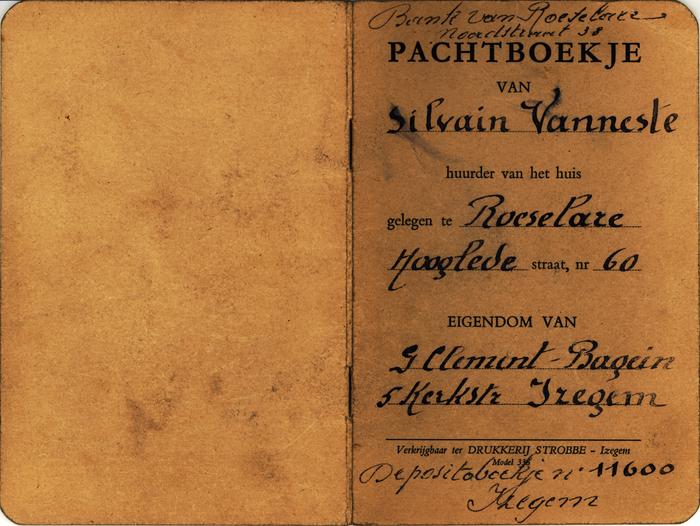 Bank van Roeselare
Noordstraat 38
PACHTBOEKJE
VAN
Silvain Vanneste
huurder van het huis
gelegen te Roeselare
Hooglede straat, nr 60
EIGENDOM VAN
G Clement-Bagein
5 Kerkstr Izegem
Verkrijgbaar ter DRUKKERIJ STROBBE - Izegem
Model 338
Depositoboekje n° 11600
Izegem